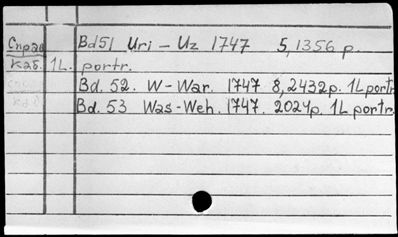 Справ Bd51 Uri – Uz 1747 5,1356 p.
каб. 1L. portr.
Bd. 52. W-War. 1747 8,2432p. 1L portr
Bd. 53 Was-Weh. 1747. 2024p. 1L portr.